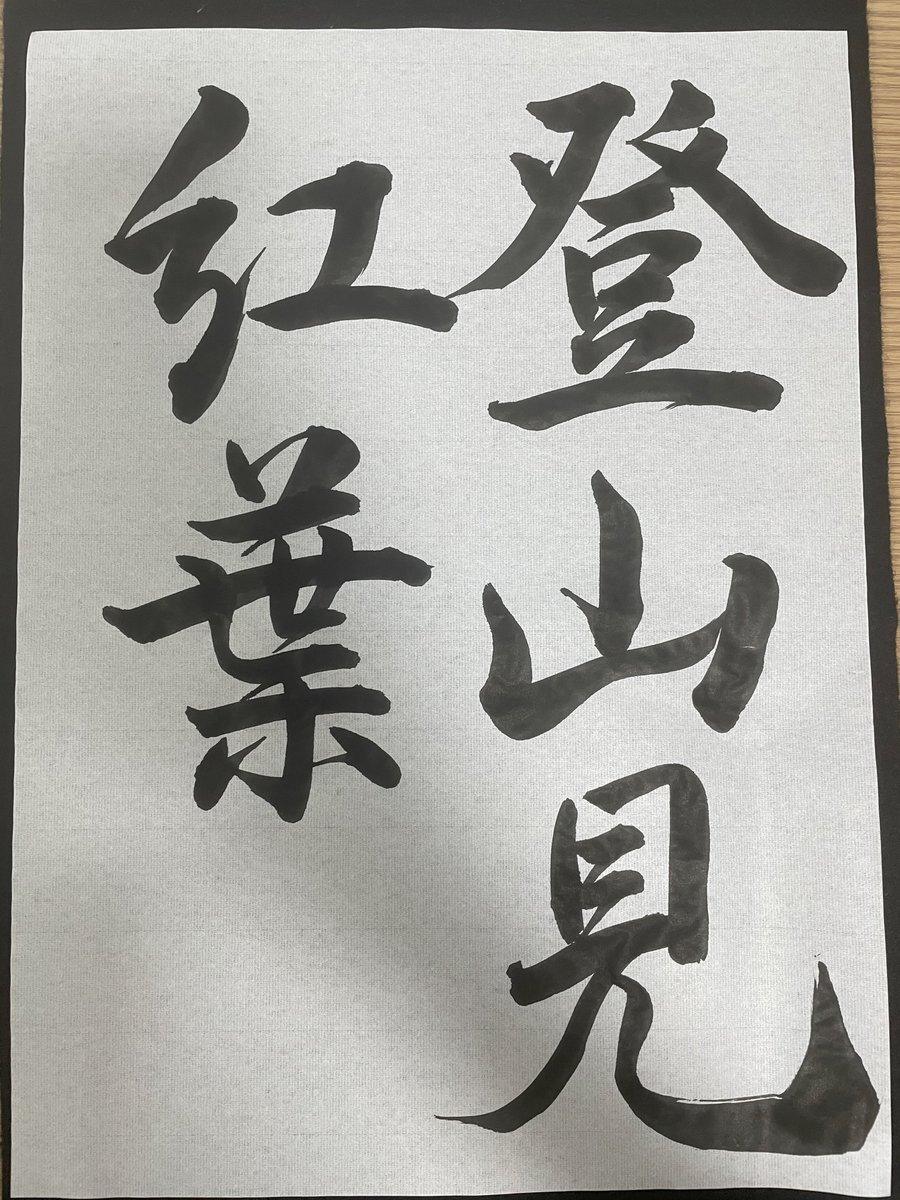 登山見
紅葉